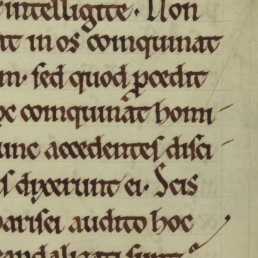 intelligite. Non
at in os coinquinat
m. sed quod pcedit
oc coinquinat homi
unc accedentes disci
s dixerunt ei. Scis
pharisei audito hoc
scandalizati sunt